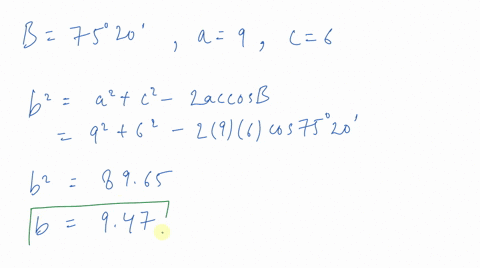 B = 75°20' , a = 9 , c = 6
b² = a² + c² - 2accosB
= 9² + 6² - 2(9)(6) cos75°20'
b² = 89.65
b = 9.47